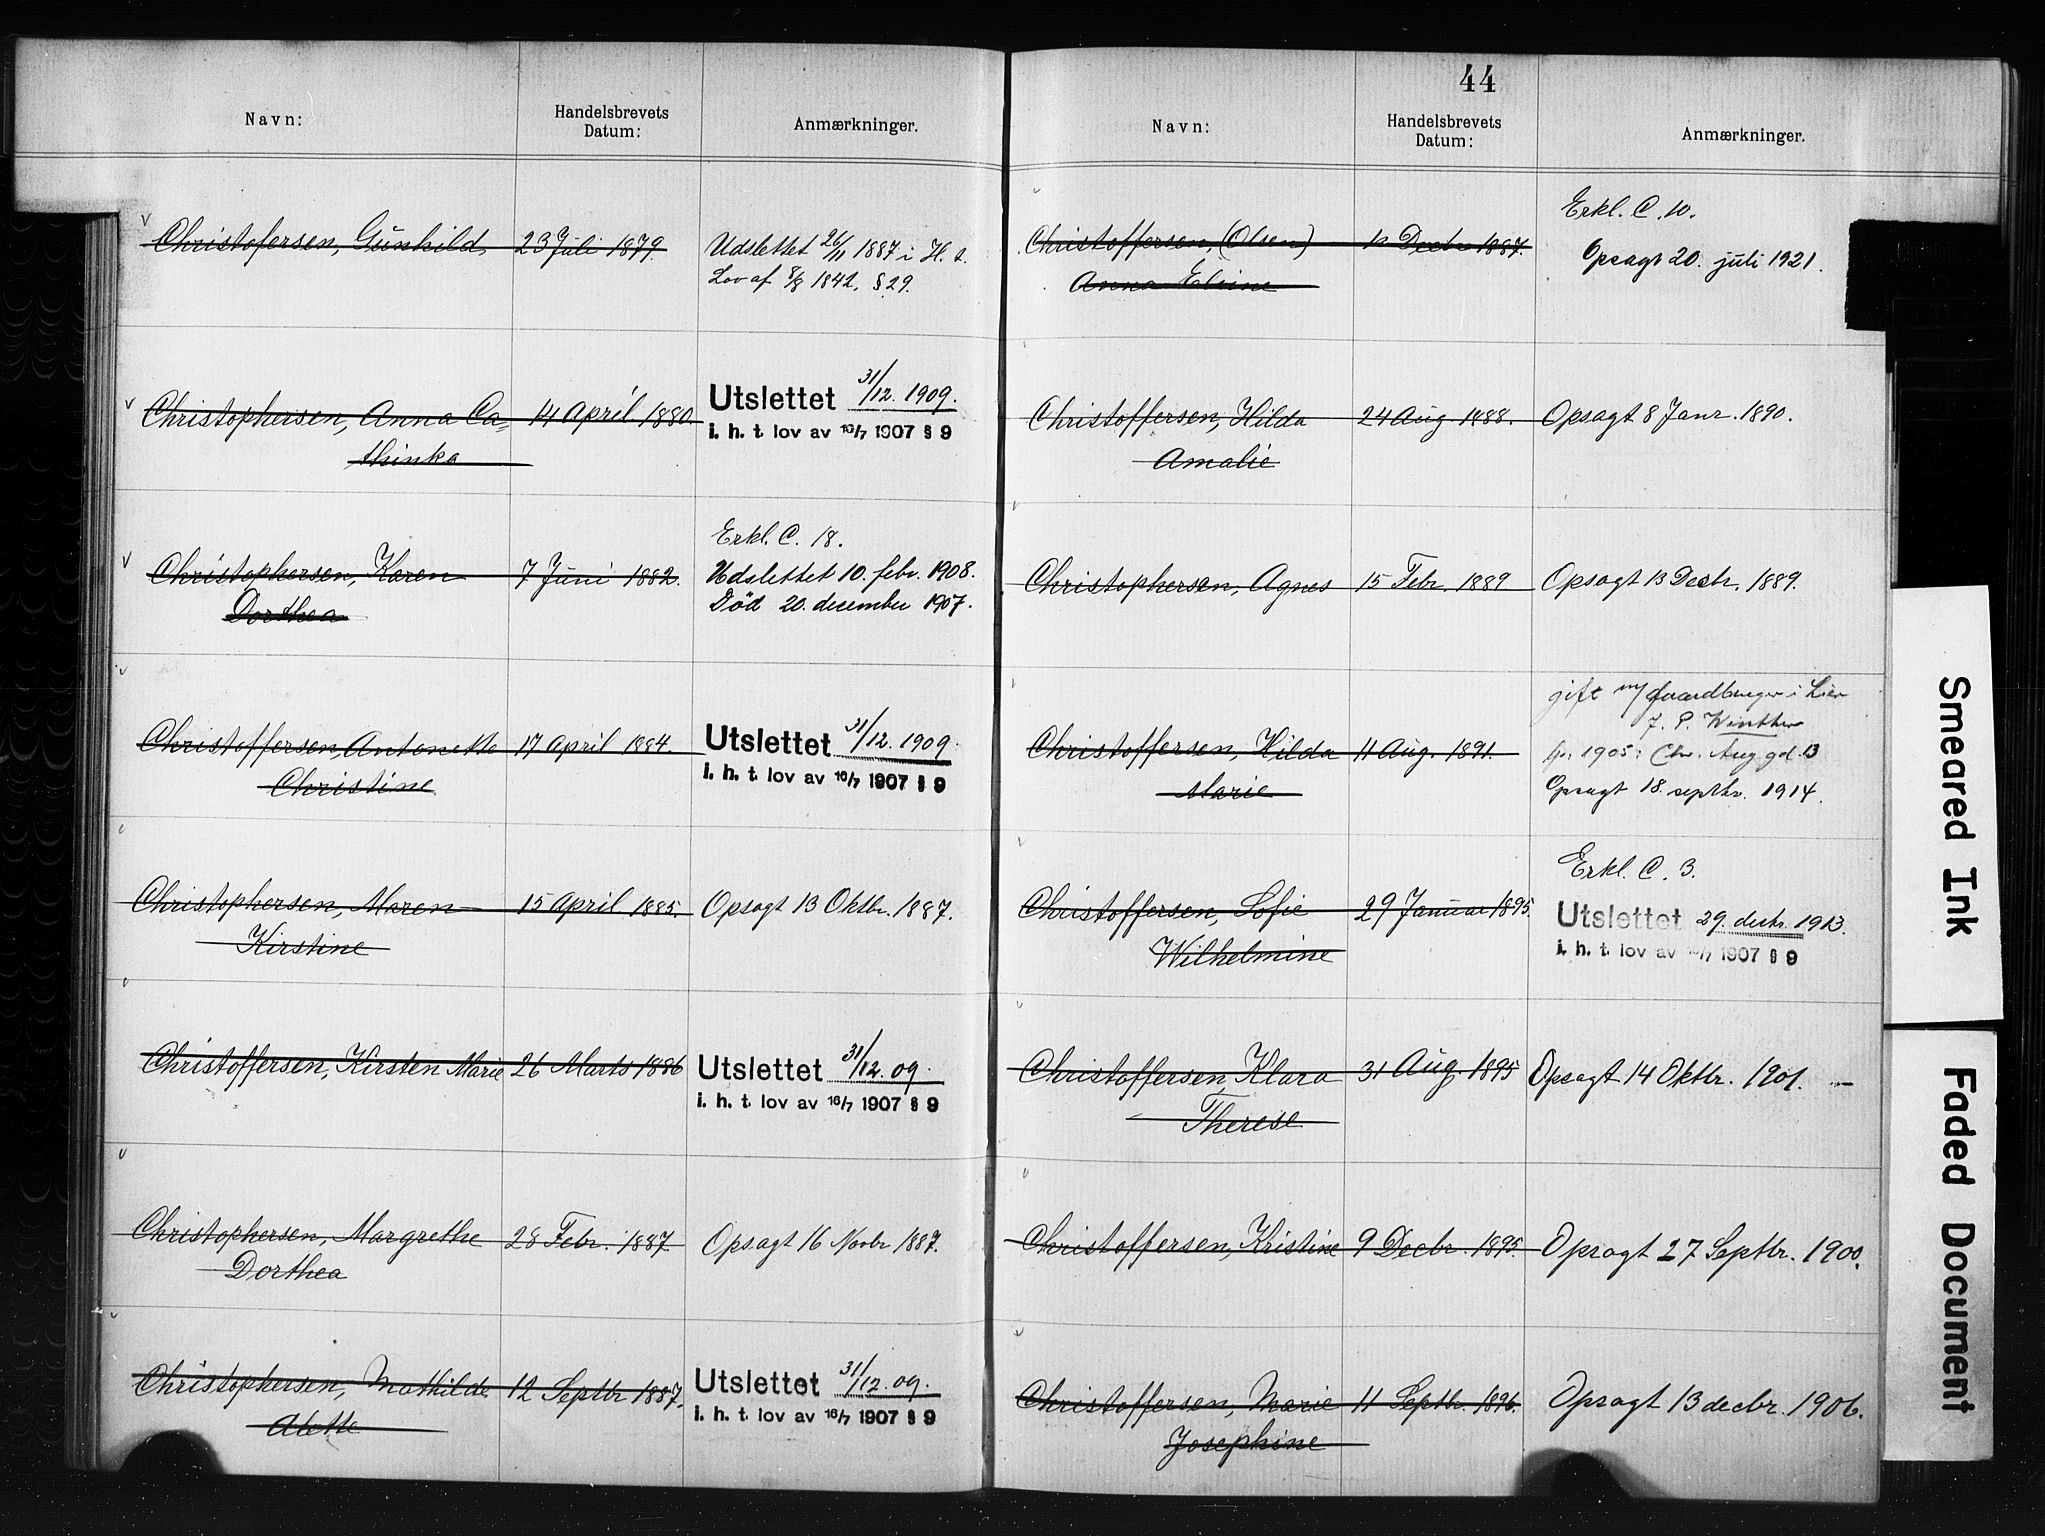 Navn:
Handelsbrevets
Datum:
Anmærkninger.
Christofersen, Gunhild 23 Juli 1879.
Udslettet 26/11 1887 i H. t.
Lov af 8/8 1842. § 29.
Christophersen, Anna Ca= 14 April 1880.
thinka
Utslettet 31/12. 1909.
i. h. t. lov av 16/7 1907 § 9
Erkl. C. 18.
Christophersen, Karen 7 Juni 1882.
Dorthea
Udslettet 10. febr. 1908.
Död 20. december 1907.
Christoffersen, Antonette 17 April 1884.
Christine
Utslettet 31/12. 1909.
i. h. t. lov av 16/7 1907 § 9
Christophersen, Maren 15 April 1885. Opsagt 13 Oktbr. 1887.
Kirstine
Christoffersen, Kirsten Marie 26 Marts 1886
Utslettet 31/12. 09.
i. h. t. lov av 16/7 1907 § 9
Christophersen, Margrethe 28 Febr. 1887. Opsagt 16 Novbr 1887.
Dorthea
Christophersen, Mathilde 12 Septbr 1887.
Alette
Utslettet 31/12. 09.
i. h. t. lov av 16/7 1907 § 9
44
Navn:
Handelsbrevets
Datum:
Anmærkninger.
Erkl. C. 10.
Christoffersen, (Olsen) Decbr 1887.
Anna Elvine
Opsagt 20. juli 1921.
Christoffersen, Hilda 24 Aug 1888. Opsagt 8 Janr. 1890.
Amalie
Christophersen, Agnes 15 Febr. 1889 Opsagt 13 Decbr. 1889.
gift m/ i Lier
J. P. Winther
Christoffersen, Hilda 11 Aug. 1891.
Marie
1905: Chr. Aug. gd. 13
Opsagt 18. septbr. 1914.
Erkl. C. 3.
Christoffersen, Sofie 29 Januar 1895.
Wilhelmine
Utslettet 29. decbr. 1913.
i. h. t. lov av 16/7 1907 § 9
Christoffersen, Klara 31 Aug. 1895 Opsagt 14 Oktbr. 1901. —
Therese
Christoffersen, Kristine 9 Decbr. 1895. Opsagt 27 Septbr. 1900.
Christoffersen, Marie 11 Septbr. 1896. Opsagt 13 decbr. 1906.
Josephine
Smeared Ink
Faded Document